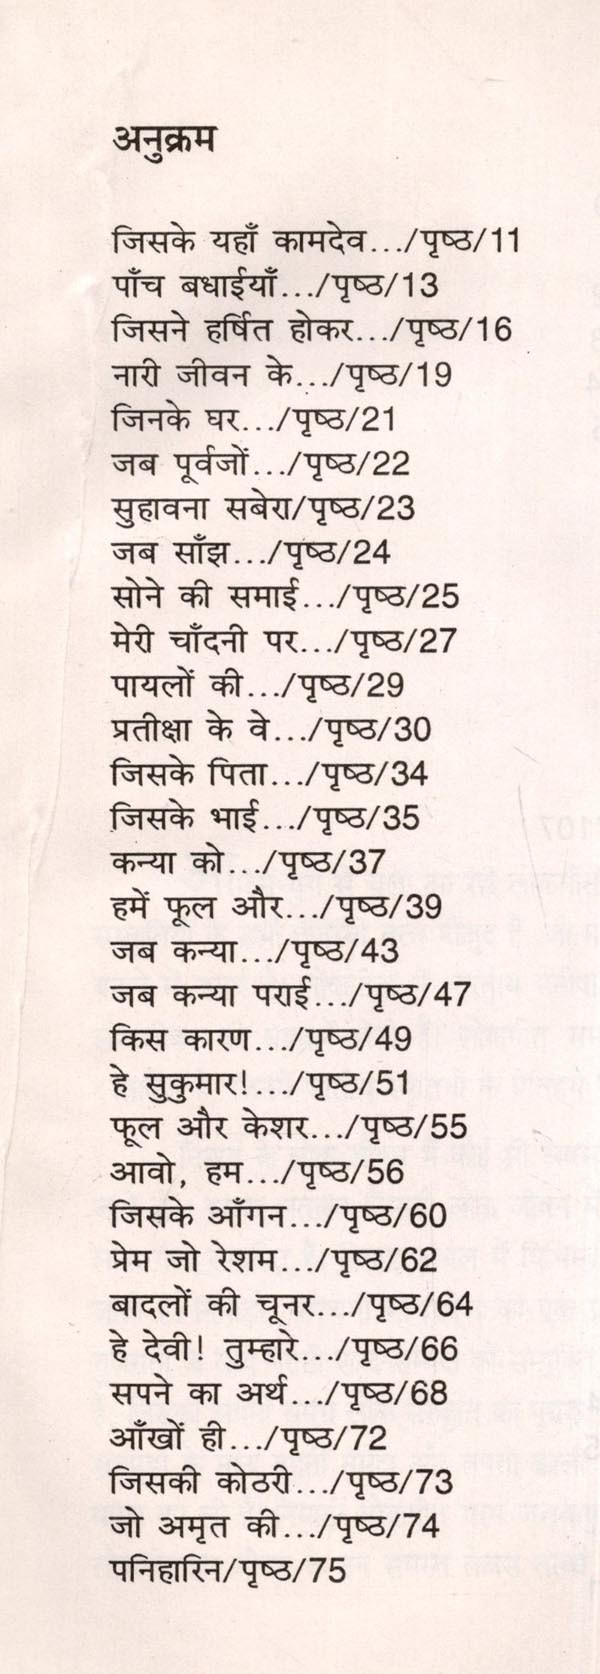 अनुक्रम
जिसके यहाँ कामदेव.../पृष्ठ/11
पाँच बधाईयाँ.../पृष्ठ/13
जिसने हर्षित होकर.../पृष्ठ/16
नारी जीवन के.../पृष्ठ/19
जिनके घर.../पृष्ठ/21
जब पूर्वजों.../पृष्ठ/22
सुहावना सबेरा/पृष्ठ/23
जब साँझ.../पृष्ठ/24
सोने की समाई.../पृष्ठ/25
मेरी चाँदनी पर.../पृष्ठ/27
पायलों की.../पृष्ठ/29
प्रतीक्षा के वे.../पृष्ठ/30
जिसके पिता.../पृष्ठ/34
जिसके भाई.../पृष्ठ/35
कन्या को.../पृष्ठ/37
हमें फूल और.../पृष्ठ/39
जब कन्या.../पृष्ठ/43
जब कन्या पराई.../पृष्ठ/47
किस कारण.../पृष्ठ/49
हे सुकुमार!.../पृष्ठ/51
फूल और केशर.../पृष्ठ/55
आवो, हम.../पृष्ठ/56
जिसके आँगन.../पृष्ठ/60
प्रेम जो रेशम.../पृष्ठ/62
बादलों की चूनर.../पृष्ठ/64
हे देवी! तुम्हारे.../पृष्ठ/66
सपने का अर्थ.../पृष्ठ/68
आँखों ही.../पृष्ठ/72
जिसकी कोठरी.../पृष्ठ/73
जो अमृत की.../पृष्ठ/74
पनिहारिन/पृष्ठ/75